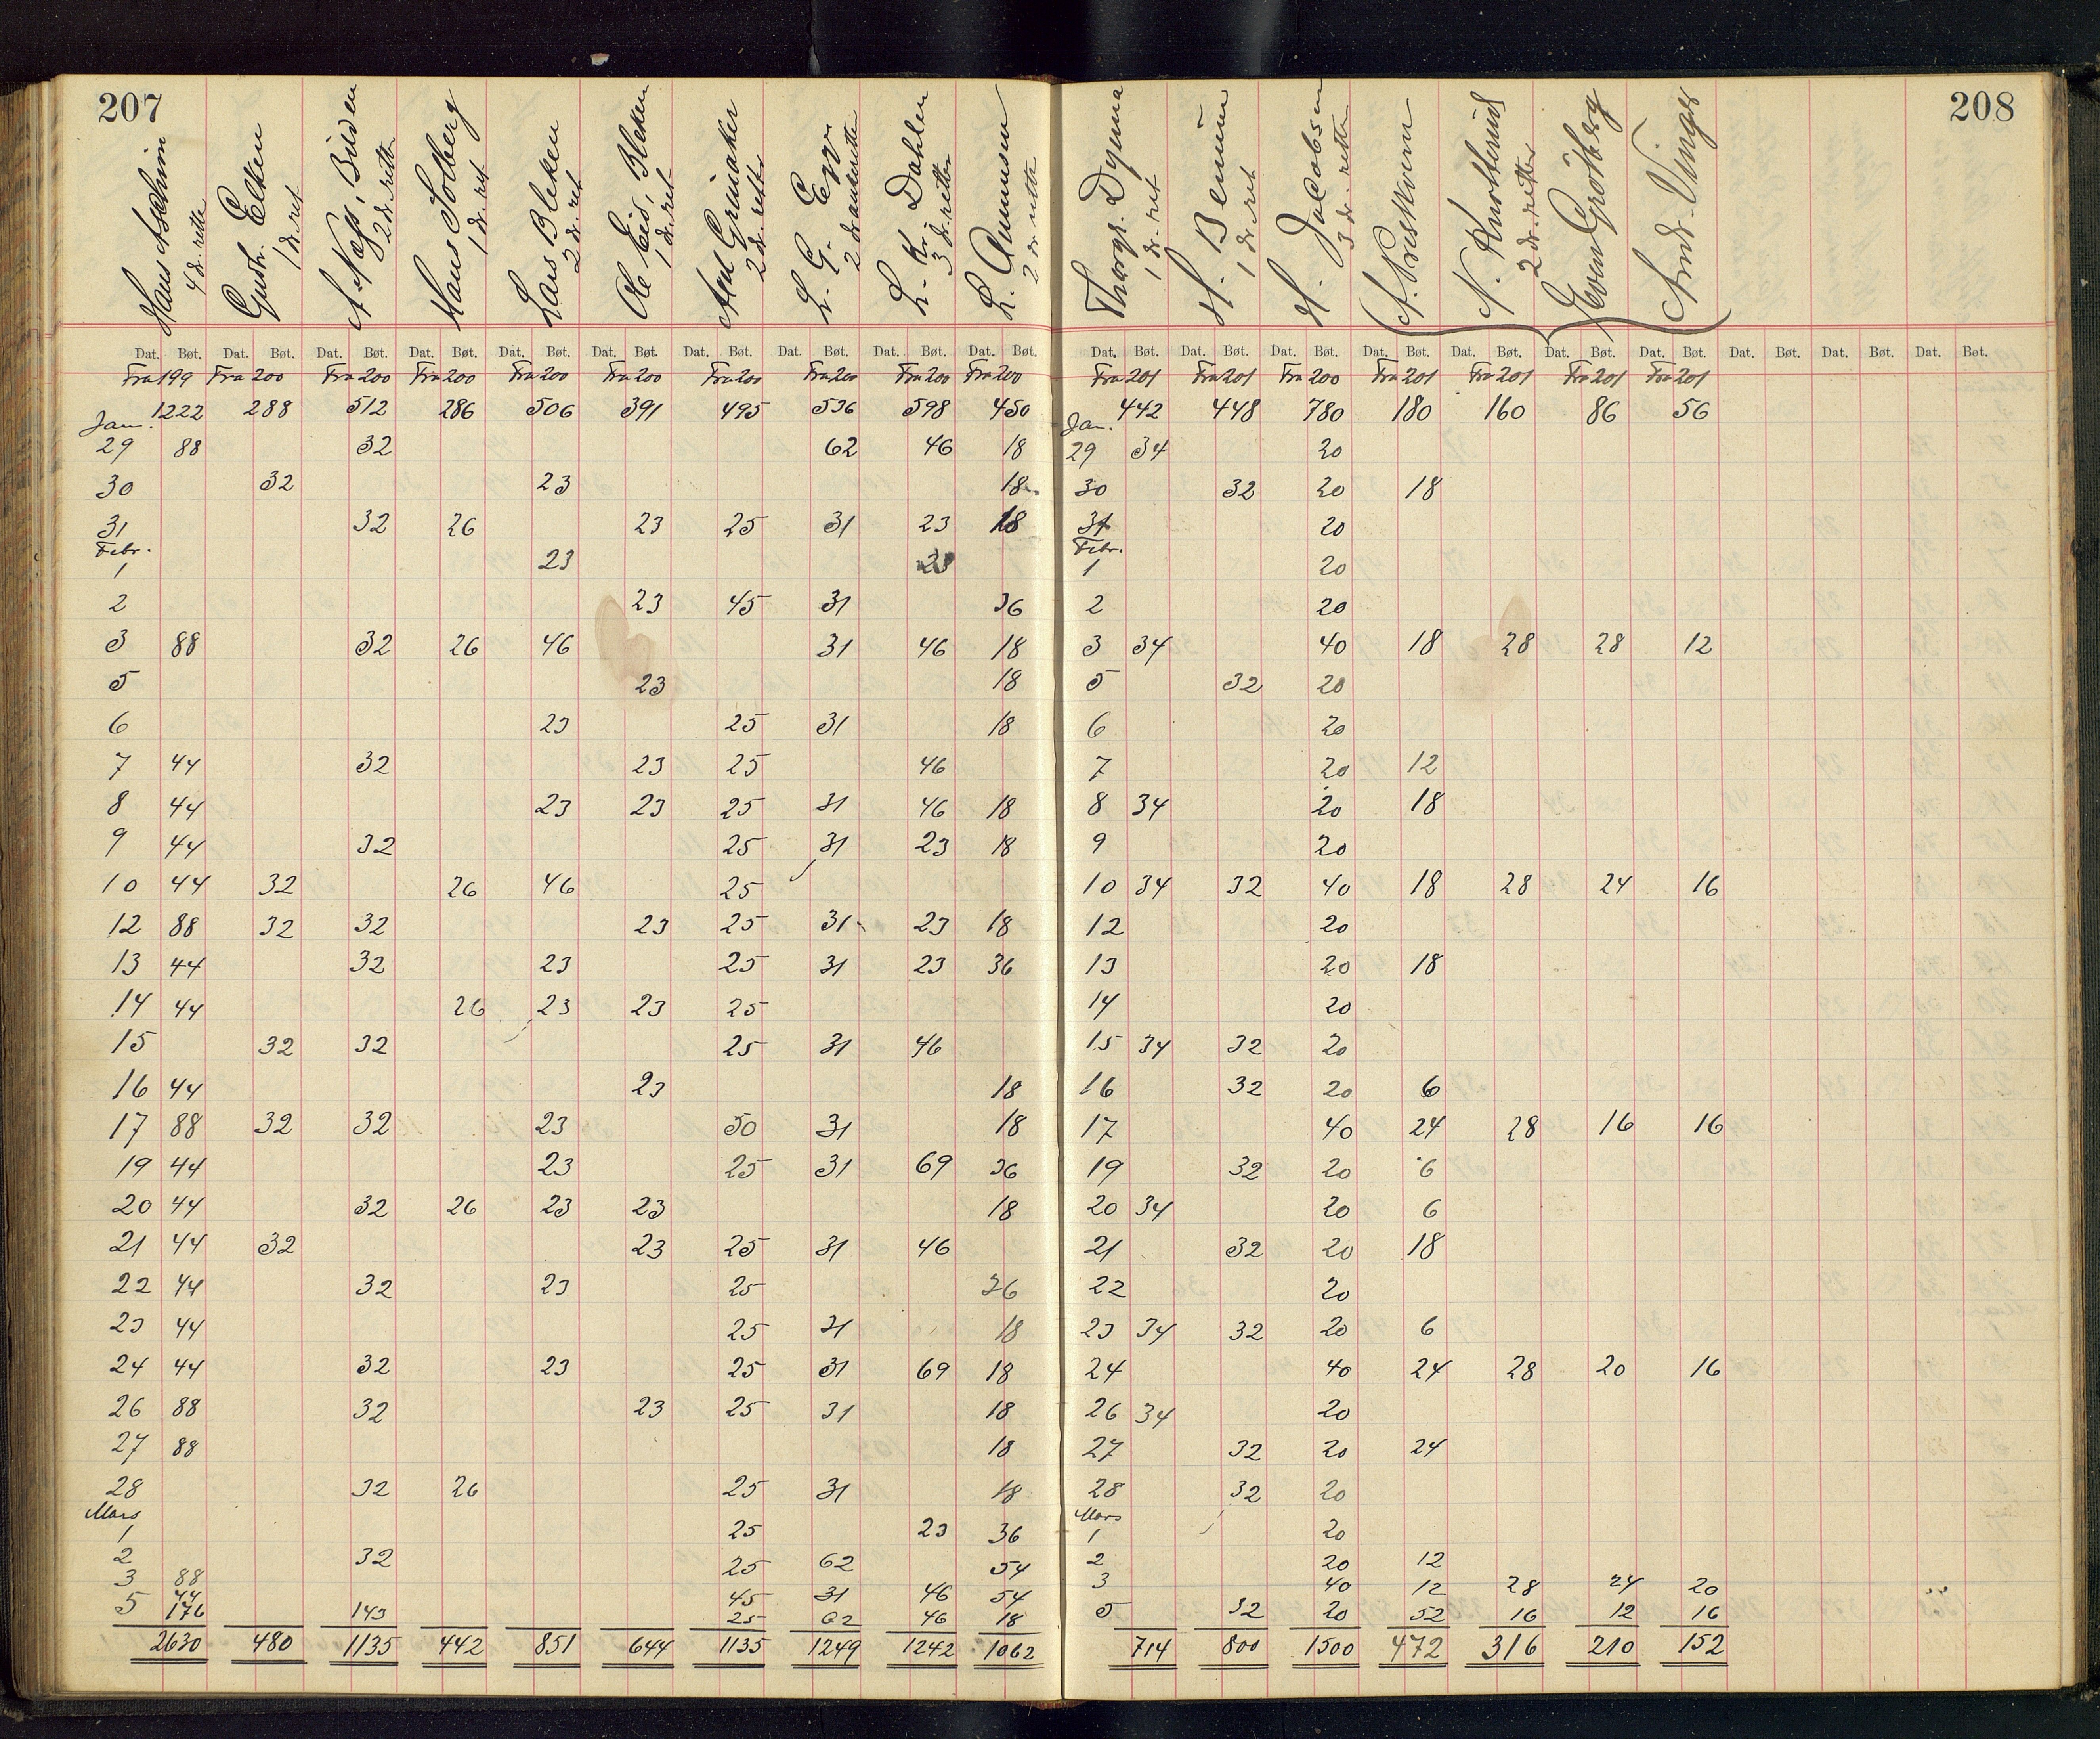 207
208
Hans Aschim 4 dr. retter
Gustv. Elken 1 dr. ret
A. Næss, Büden 2 dr. retter
Hans Solberg 1 dr. ret
Lars Bleken 2 dr. ret
Ole Eid, Bleken 1 dr. ret
Axel Grimaker 2 dr. retter
L. G. 2 dr. andretter
L. Kr. Dahlen 3 dr. retter
L. Amunsen 2 dr. rette
Thorgr. Dynna 1 dr. ret
H. 1 dr. ret
H. Jacobsen 3 dr. retter
A. Prestkvern
N. Knotterud 2 dr. retter
Even Grötberg
And. Vinger
Dat. Bøt. Dat. Bøt. Dat. Bøt. Dat. Bøt. Dat. Bøt. Dat. Bøt. Dat. Bøt. Dat. Bøt. Dat. Bøt. Dat. Bøt.
Fra 199 Fra 200 Fra 200 Fra 200 Fra 200 Fra 200 Fra 200 Fra 200 Fra 200 Fra 200
1222 288 512 286 506 391 495 536 598 450
Jan.
29 88 32 62 46 18
30 32 23 18
31 32 26 23 25 31 23 18
Febr.
1 23 23
2 23 45 31 36
3 88 32 26 46 31 46 18
5 23 18
6 23 25 31 18
7 44 32 23 25 46
8 44 23 23 25 31 46 18
9 44 32 25 31 23 18
10 44 32 26 46 25
12 88 32 32 23 25 31 23 18
13 44 32 23 25 31 23 36
14 44 26 23 23 25
15 32 32 25 31 46
16 44 23 18
17 88 32 32 23 50 31 18
19 44 23 25 31 69 36
20 44 32 26 23 23 18
21 44 32 23 25 31 46
22 44 32 23 25 36
23 44 25 31 18
24 44 32 23 25 31 69 18
26 88 32 23 25 31 18
27 88 18
28 32 26 25 31 18
Mars
1 25 23 36
2 32 25 62 54
3 88
44 45 31 46 54
5 176 143 25 62 46 18
2630 480 1135 442 851 644 1135 1249 1242 1062
Dat. Bøt. Dat. Bøt. Dat. Bøt. Dat. Bøt. Dat. Bøt. Dat. Bøt. Dat. Bøt. Dat. Bøt. Dat. Bøt. Dat. Bøt.
Fra 201 Fra 201 Fra 200 Fra 201 Fra 201 Fra 201 Fra 201
442 448 780 180 160 86 56
Jan.
29 34 20
30 32 20 18
31 20
Febr.
1 20
2 20
3 34 40 18 28 28 12
5 32 20
6 20
7 20 12
8 34 20 18
9 20
10 34 32 40 18 28 24 16
12 20
13 20 18
14 20
15 34 32 20
16 32 20 6
17 40 24 28 16 16
19 32 20 6
20 34 20 6
21 32 20 18
22 20
23 34 32 20 6
24 40 24 28 20 16
26 34 20
27 32 20 24
28 32 20
Mars
1 20
2 20 12
3 40 12 28 24 20
5 32 20 52 16 12 16
714 800 1500 472 316 210 152